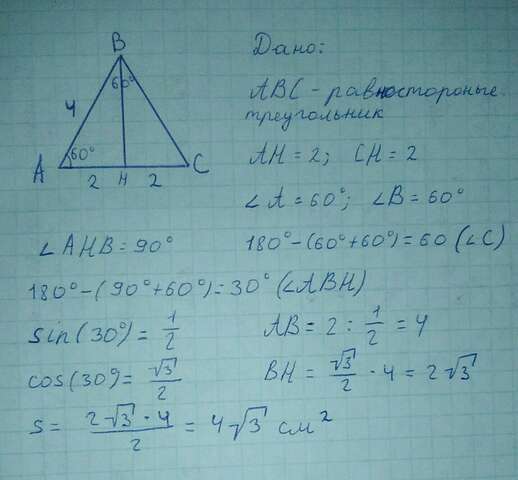 B
60°
4
60°
A
2
H
2
C
Дано:
ABC - равностороные
треугольник
AH = 2; CH = 2
∠A = 60°; ∠B = 60°
∠AHB = 90°
180° - (60° + 60°) = 60 (∠C)
180° - (90° + 60°) = 30° (∠ABH)
sin(30°) = 1/2
AB = 2 : 1/2 = 4
cos(30°) = √3/2
BH = √3/2 · 4 = 2√3
S = 2√3 · 4/2 = 4√3 см²